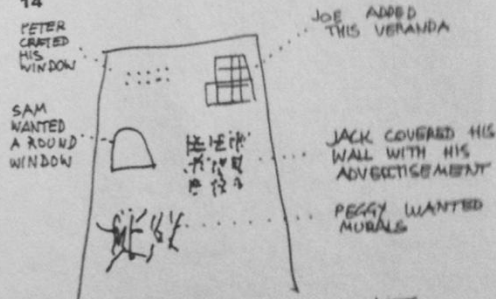 14
PETER
CRATED
HIS
WINDOW
JOE ADDED
THIS VERANDA
SAM
WANTED
A ROUND
WINDOW
JACK COVERED HIS
WALL WITH HIS
ADVERTISEMENT
PEGGY WANTED
MURALS